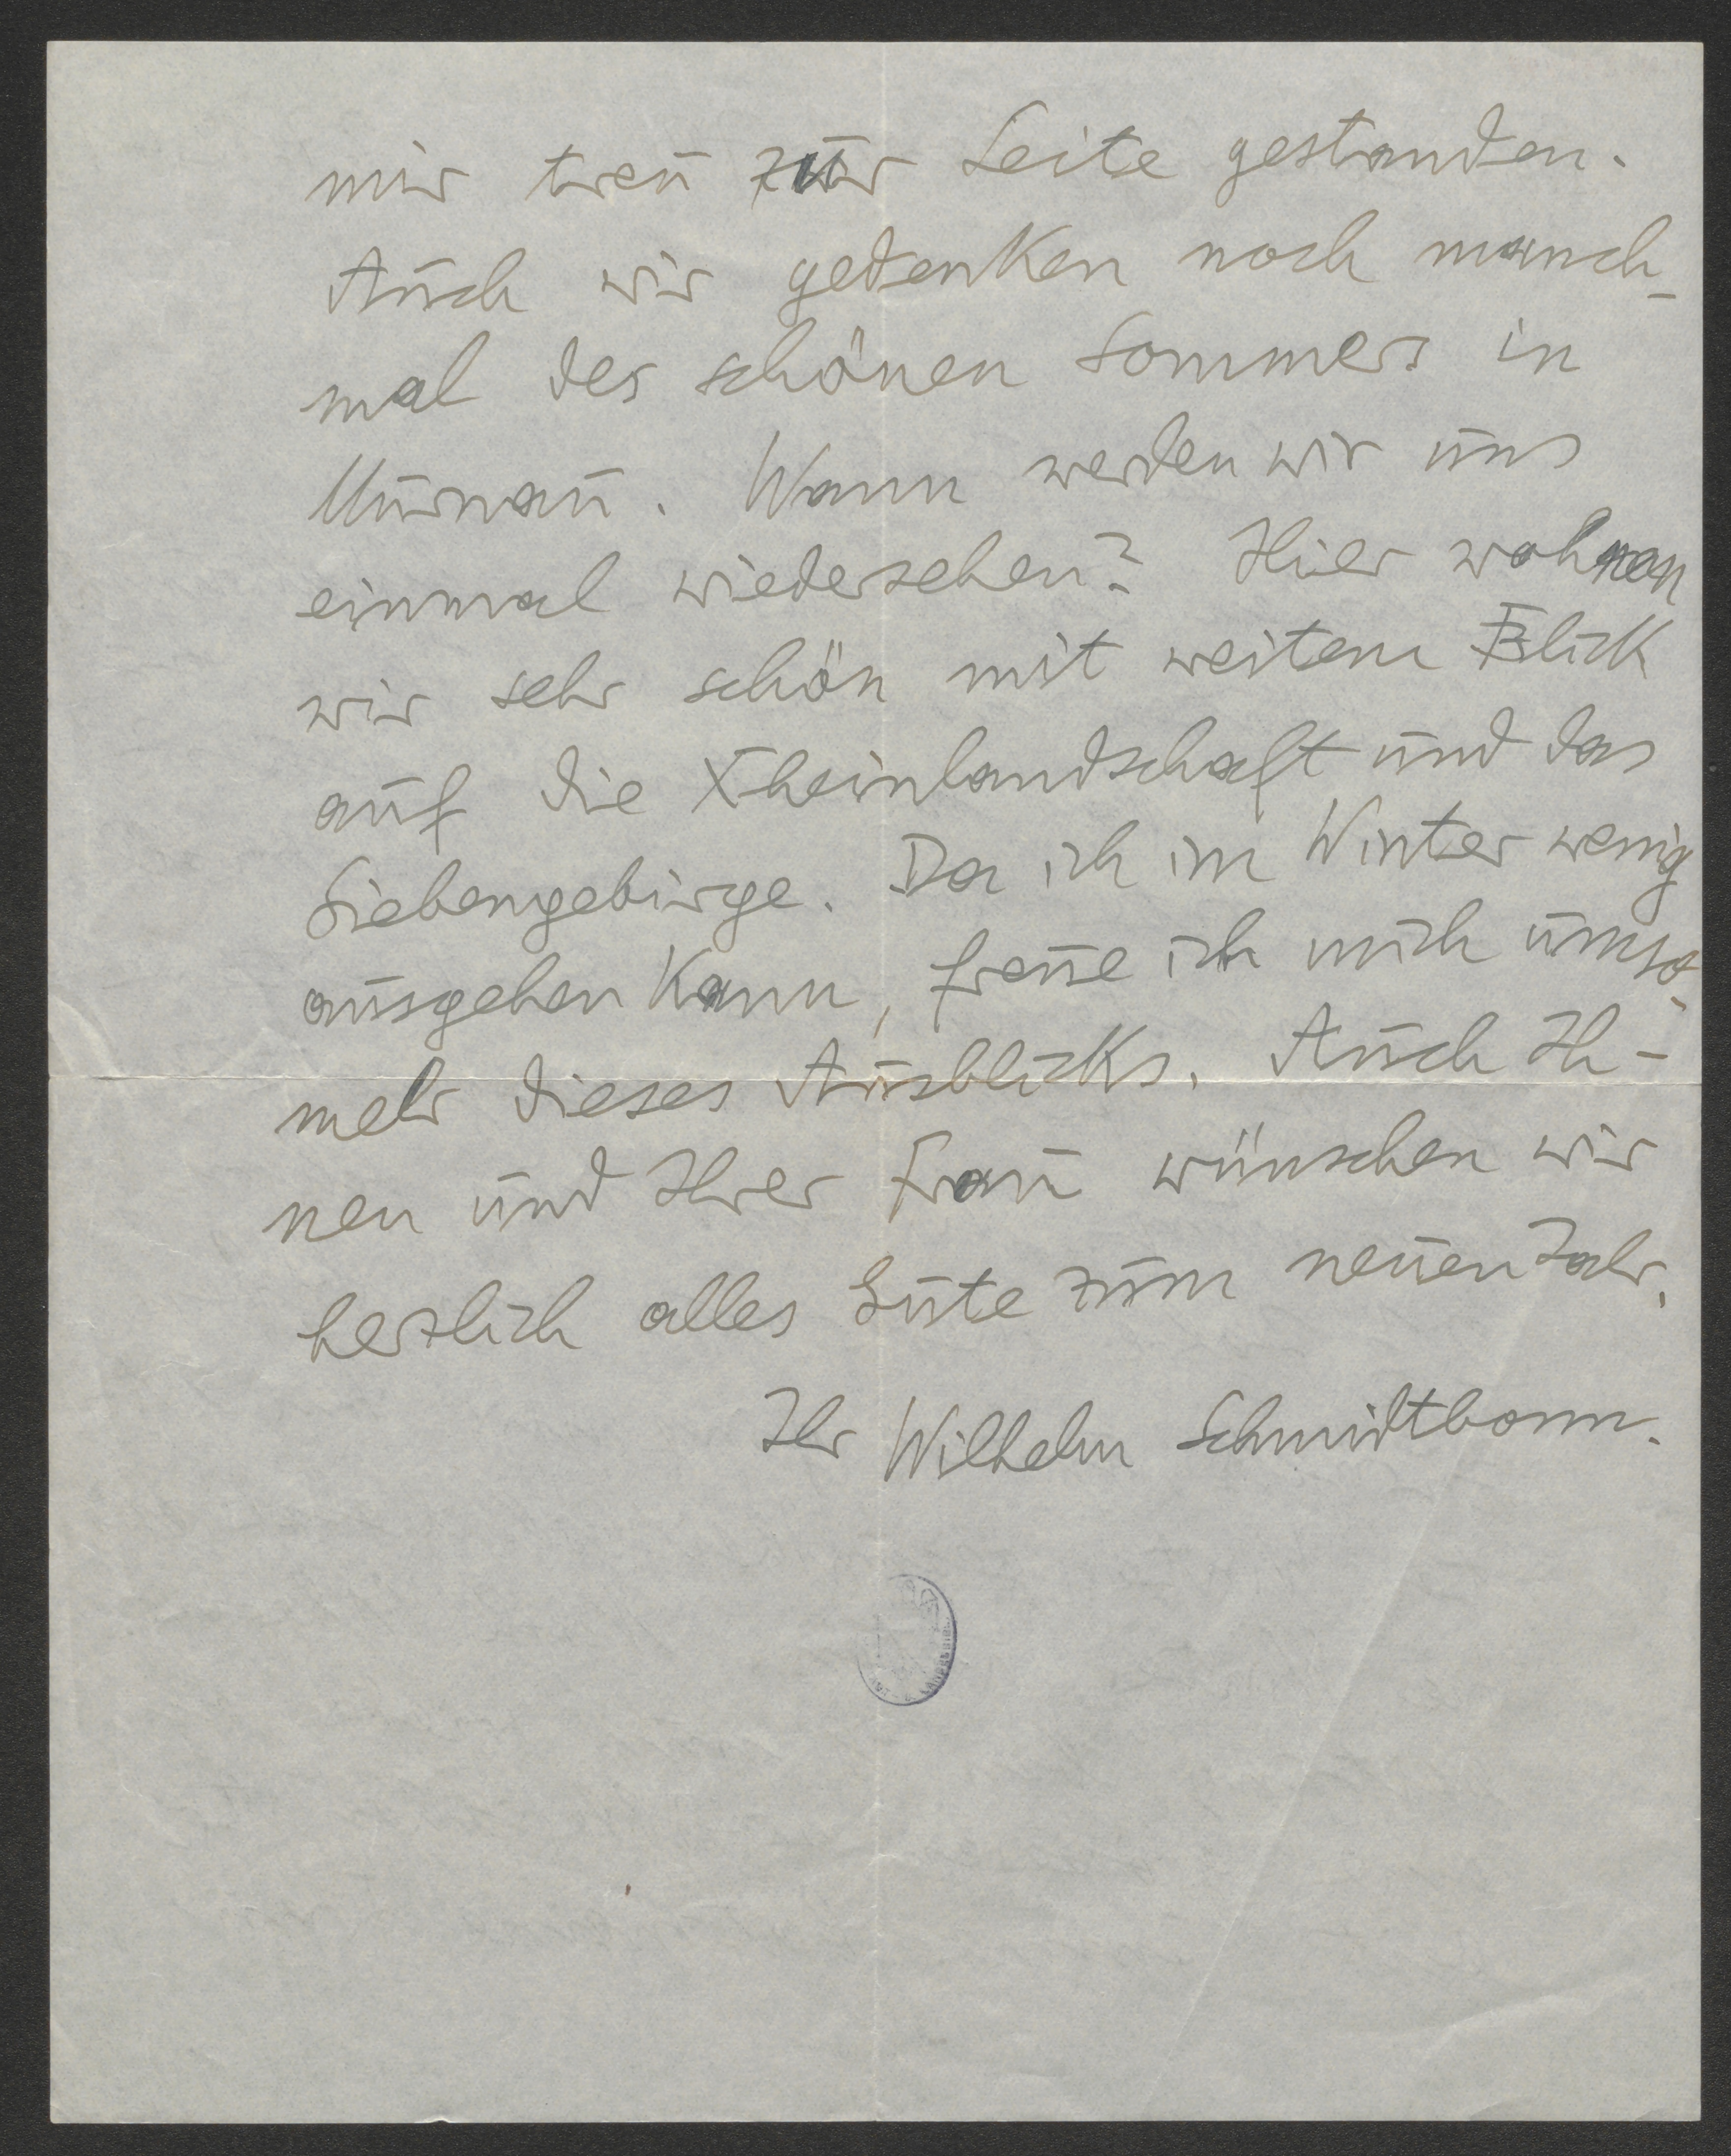 mir treu zur Seite gestanden.
Auch wir gedenken noch manch-
mal des schönen Sommers in
Murnau. Wann werden wir uns
einmal wiedersehen? Hier wohnen
wir sehr schön mit weitem Blick
auf die Rheinlandschaft und das
Siebengebirge. Da ich im Winter wenig
ausgehen kann, freue ich mich umso-
mehr dieses Ausblicks. Auch Ih-
nen und Ihrer Frau wünschen wir
herzlich alles Gute zum neuen Jahr.
Ihr Wilhelm Schmidtbonn.